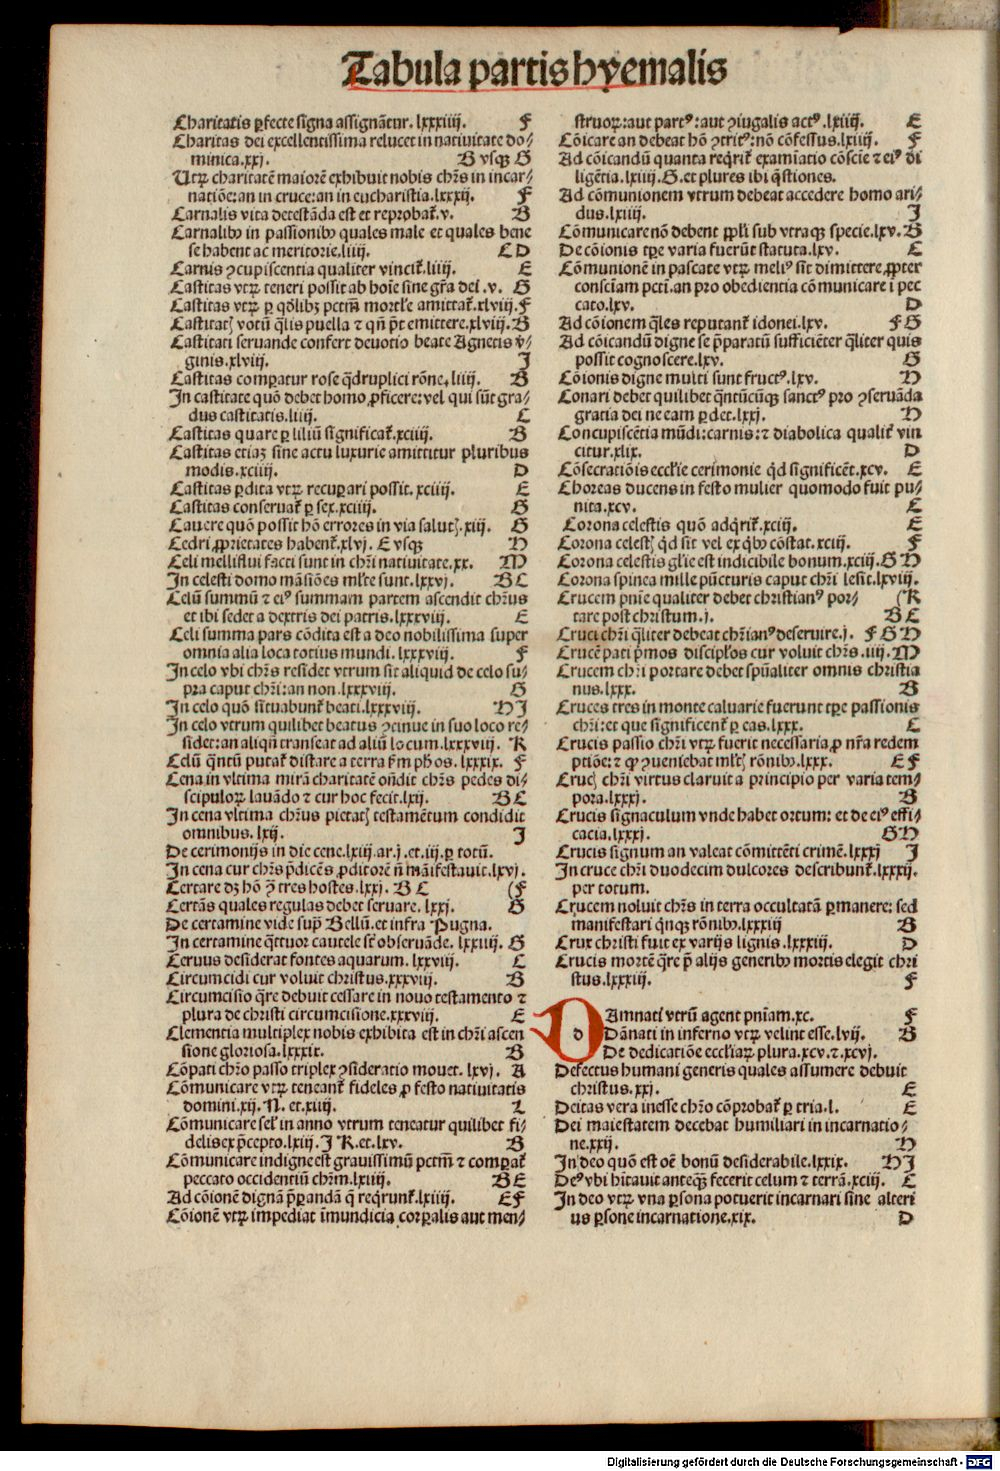 Tabula partis hyemalis
Charitatis ꝑfecte signa assignãtur. lxxxiiij. F
Charitas dei excellentissima relucet in nativitate do⸗
minica.xxj. B vsqꝫ G
Utꝝ charitatẽ maiorẽ exhibuit nobis chr̃s in incar⸗
natiõe:an in cruce:an in eucharistia.lxxxij. F
Carnalis vita detestãda est et reprobat̃.v. B
Carnalibꝰ in passionibꝰ quales male et quales bene
se habent ac meritorie.liiij. C D
Carnis ꝯcupiscentia qualiter vincit̃.liiij. E
Castitas vtꝝ teneri possit ab hoĩe sine gr̃a dei .v. G
Castitas vtꝝ ꝑ qđlibꝫ pctm̃ mortl̃e amittat̃.xlviij.F
Castitatꝭ votũ q̃lis puella ⁊ qñ p̃t emittere.xlviij.B
Castitati seruande confert deuotio beate Agnetis v̾⸗
ginis.xlviij. J
Castitas comꝑatur rose q̃druplici rõne.liiij. B
In castitate quõ debet homo ꝓficere:vel qui sũt gra⸗
dus castitatis.liiij. C
Castitas quare ꝑ liliũ significat̃.xciiij. B
Castitas etiaꝫ sine actu luxurie amittitur pluribus
modis.xciiij. D
Castitas ꝑdita vtꝝ recuꝑari possit. xciiij. E
Castitas conseruat̃ ꝑ sex.xciiij. G
Cauere quõ possit hõ errores in via salutꝭ.xij. G
Cedri ꝓprietates habent̃.xlvj. E vsqꝫ H
Celi melliflui facti sunt in chr̃i nativitate.xx. M
In celesti domo mãsiões ml̃te sunt.lxxvj. B C
Celũ summũ ⁊ eiꝰ summam partem ascendit chr̃us
et ibi sedet a dextris dei patris.lxxxviij. E
Celi summa pars cõdita est a deo nobilissima super
omnia alia loca totius mundi. lxxxviij. F
In celo vbi chr̃s residet vtrum sit aliquid de celo su⸗
pra caput chr̃i:an non.lxxxviij. G
In celo quõ situabunt̃ beati.lxxxviij. H J
In celo vtrum quilibet beatus ꝯtinue in suo loco re⸗
sidet:an aliqñ transeat ad aliũ locum.lxxxviij. K
Celũ q̃ntũ putat̃ distare a terra ẜm ph̃os. lxxxix. F
Cena in vltima mirã charitatẽ oñdit chr̃s pedes di⸗
scipuloꝝ lauãdo ⁊ cur hoc fecit.lxij. B C
In cena vltima chr̃us pietatꝭ testamẽtum condidit
omnibus. lxij. J
De cerimonijs in die cene.lxiij.ar.j.et.iij.ꝑ totũ.
In cena cur chr̃s p̃dicẽs ꝓditorẽ ñ manifestauit.lxvj.
Certare dꝫ hõ ꝯ̃ tres hostes.lxxj. B C (F
Certãs quales regulas debet seruare. lxxj. G
De certamine vide sup̃ Bellũ.et infra Pugna.
In certamine q̃ttuor cautele sũt obseruãde. lxxiiij. G
Ceruus desiderat fontes aquarum. lxxviij. C
Circumcidi cur voluit christus.xxxviij. B
Circumcisio q̃re debuit cessare in nouo testamento ⁊
plura de christi circumcisione.xxxviij. E
Clementia multiplex nobis exhibita est in chr̃i ascen
sione gloriosa.lxxxix. B
Cõpati chr̃o passo triplex ꝯsideratio mouet. lxvj. A
Cõmunicare vtꝝ teneant̃ fideles ꝓ festo nativitatis
domini.xij. N. et.xiiij. L
Cõmunicare sel̃ in anno vtrum teneatur quilibet fi⸗
delis ex p̃cepto.lxiij. J K.et.lxv. B
Cõmunicare indigne est grauissimũ pctm̃ ⁊ comꝑat̃
peccato occidentiũ chr̃m.lxiiij. B E
Ad cõionẽ dignã p̃ꝑandã q̃ req̃runt̃.lxiiij. E F
Cõionẽ vtꝝ impediat ĩmundicia corꝑalis aut men⸗
struoꝝ:aut partꝰ:aut ꝯiugalis actꝰ.lxiiij. E
Cõicare an debeat hõ ꝯtritꝰ:nõ cõfessus.lxiiij. F
Ad cõicandũ quanta req̃rit̃ examĩatio cõscĩe ⁊ eiꝰ di
ligẽtia.lxiiij.G.et plures ibi q̃stiones.
Ad cõmunionem vtrum debeat accedere homo ari⸗
dus.lxiiij. J
Cõmunicare nõ debent ppl̃i sub vtraqꝫ specie.lxv.B
De cõionis tp̃e varia fuerũt statuta.lxv. C
Cõmunionẽ in pascate vtꝝ meliꝰ sit dimittere ꝓpter
consciam pcti.an pro obedientia cõmunicare ĩ pec
cato.lxv. D
Ad cõionem q̃les reputant̃ idonei.lxv. F G
Ad cõicandũ digne se p̃paratũ sufficiẽter q̃liter quis
possit cognoscere.lxv. G
Cõionis digne multi sunt fructꝰ.lxv. H
Conari debet quilibet q̃ntũcũqꝫ sanctꝰ pro ꝯseruãda
gratia dei ne eam ꝑdet.lxxj. H
Concupiscẽtia mũdi:carnis:⁊ diabolica qualit̃ vin
citur.xlix. D
Cõsecratiõis eccl̃ie cerimonie q̃d significẽt.xcv. E
Choreas ducens in festo mulier quomodo fuit pu⸗
nita.xcv. C
Corona celestis quõ adq̃rit̃.xciij. E
Corona celestꝭ q̃d sit vel ex q̃bꝰ cõstat.xciij. F
Corona celestis gl̃ie est indicibile bonum.xciij.G H
Corona spinea mille pũcturis caput chr̃i lesit.lxviij.
Crucem pn̄ie qualiter debet christianꝰ por⸗ (K
tare post christum.j. B C
Cruci chr̃i q̃liter debeat chr̃ianꝰ deseruire.j. F G H
Crucẽ pati p̃mos discipl̃os cur voluit chr̃s.iiij.M
Crucem chr̃i portare debet spũaliter omnis christia
nus.lxxx. B
Cruces tres in monte caluarie fuerunt tp̃e passionis
chr̃i:et que significent̃ ꝑ eas.lxxx. C
Crucis passio chr̃i vtꝝ fuerit necessaria ꝓ nr̃a redem
ptiõe:⁊ ꝙ ꝯueniebat ml̃tꝭ rõnibꝰ.lxxx. E F
Crucꝭ chr̃i virtus claruit a principio per varia tem⸗
pora.lxxxj. B
Crucis signaculum vnde habet ortum: et de eiꝰ effi⸗
cacia.lxxxj. G H
Crucis signum an valeat cõmittẽti crimẽ.lxxxj J
In cruce chr̃i duodecim dulcores describunt̃.lxxxij.
per totum.
Crucem noluit chr̃s in terra occultatã ꝑmanere: sed
manifestari q̃nqꝫ rõnibꝰ.lxxxiij B
Crux christi fuit ex varijs lignis.lxxxiij. D
Crucis mortẽ q̃re p̃ alijs generibꝰ mortis elegit chri
stus.lxxxiij. F
d
DAmnati vtrũ agent pnĩam.xc. F
Dãnati in inferno vtꝝ velint esse.lvij. B
De dedicatiõe eccl̃iaꝝ plura.xcv.⁊.xcvj.
Defectus humani generis quales assumere debuit
christus.xxj. E
Deitas vera inesse chr̃o cõprobat̃ ꝑ tria.l. E
Dei maiestatem decebat humiliari in incarnatio⸗
ne.xxij. H
In deo quõ est oẽ bonũ desiderabile.lxxix. H J
Deꝰ vbi hĩtauit anteqꝫ̃ fecerit celum ⁊ terrã.xciij. C
In deo vtꝝ vna ꝑsona potuerit incarnari sine alteri
us ꝑsone incarnatione.xix. D
Digitalisierung gefördert durch die Deutsche Forschungsgemeinschaft - DFG